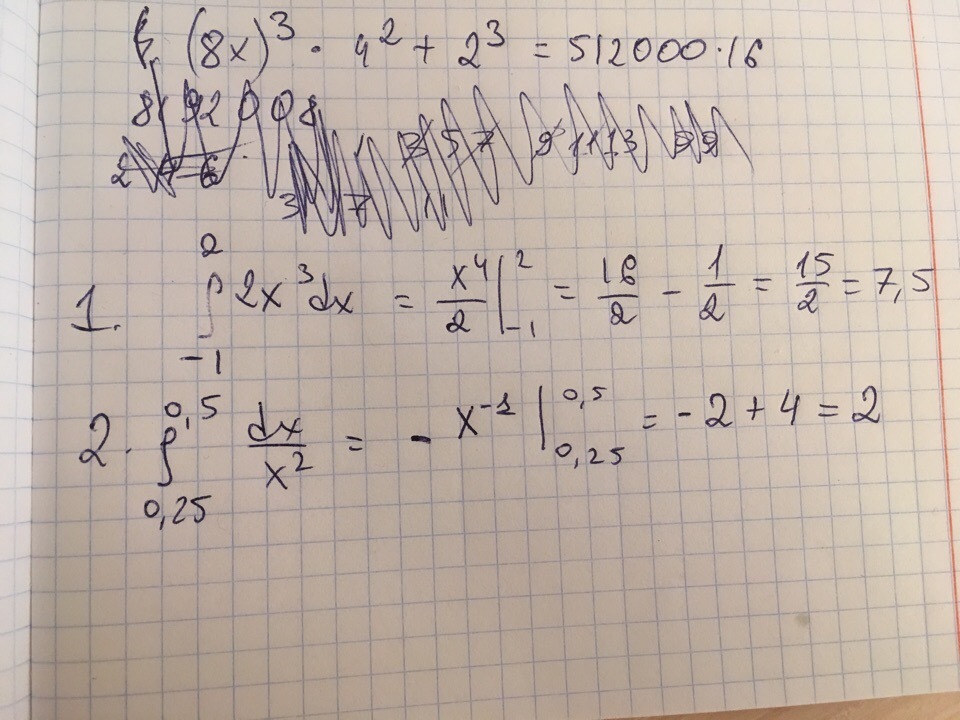 (8x)³ · 4² + 2³ = 512000·16
8192008
1. ∫₋₁² 2x³dx = x⁴/2 |₋₁² = 16/2 − 1/2 = 15/2 = 7,5
2. ∫₀,₂₅^0,5 dx/x² = - x⁻¹ |₀,₂₅^0,5 = -2+4=2